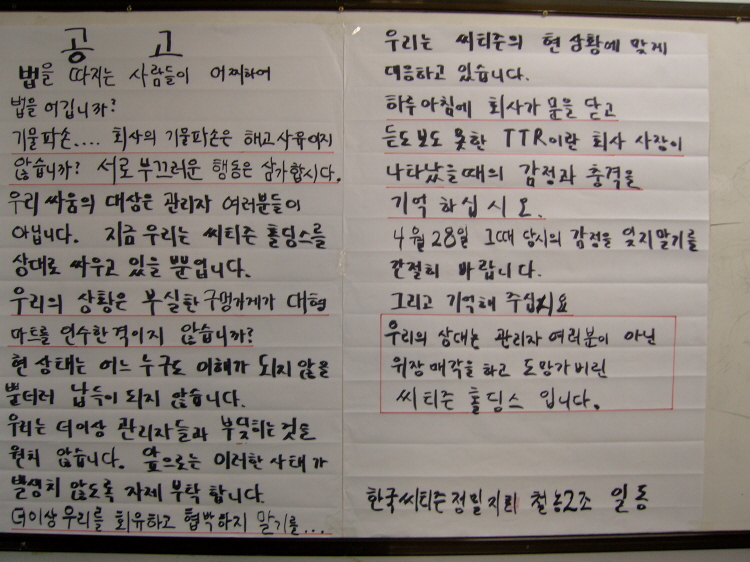 공 고
법을 따지는 사람들이 어찌하여
법을 어깁니까?
기물파손.... 회사의 기물파손은 해고사유이지
않습니까? 서로 부끄러운 행동은 삼가합시다.
우리 싸움의 대상은 관리자 여러분들이
아닙니다. 지금 우리는 씨티즌 홀딩스를
상대로 싸우고 있을 뿐입니다.
우리의 상황은 부실한 구멍가게가 대형
마트를 인수한 격이지 않습니까?
현 상태는 어느 누구도 이해가 되지 않을
뿐더러 납득이 되지 않습니다.
우리는 더이상 관리자들과 부딪히는 것을
원치 않습니다. 앞으로는 이러한 사태가
발생치 않도록 자제 부탁 합니다.
더이상 우리를 회유하고 협박하지 말기를...
우리는 씨티즌의 현 상황에 맞게
대응하고 있습니다.
하루아침에 회사가 문을 닫고
듣도 보도 못한 TTR이란 회사 사장이
나타났을때의 감정과 충격을
기억 하십시오.
4월 28일 그때 당시의 감정을 잊지말기를
간절히 바랍니다.
그리고 기억해 주십시요
우리의 상대는 관리자 여러분이 아닌
위장 매각을 하고 도망가버린
씨티즌 홀딩스 입니다.
한국씨티즌정밀지회 철농2조 일동